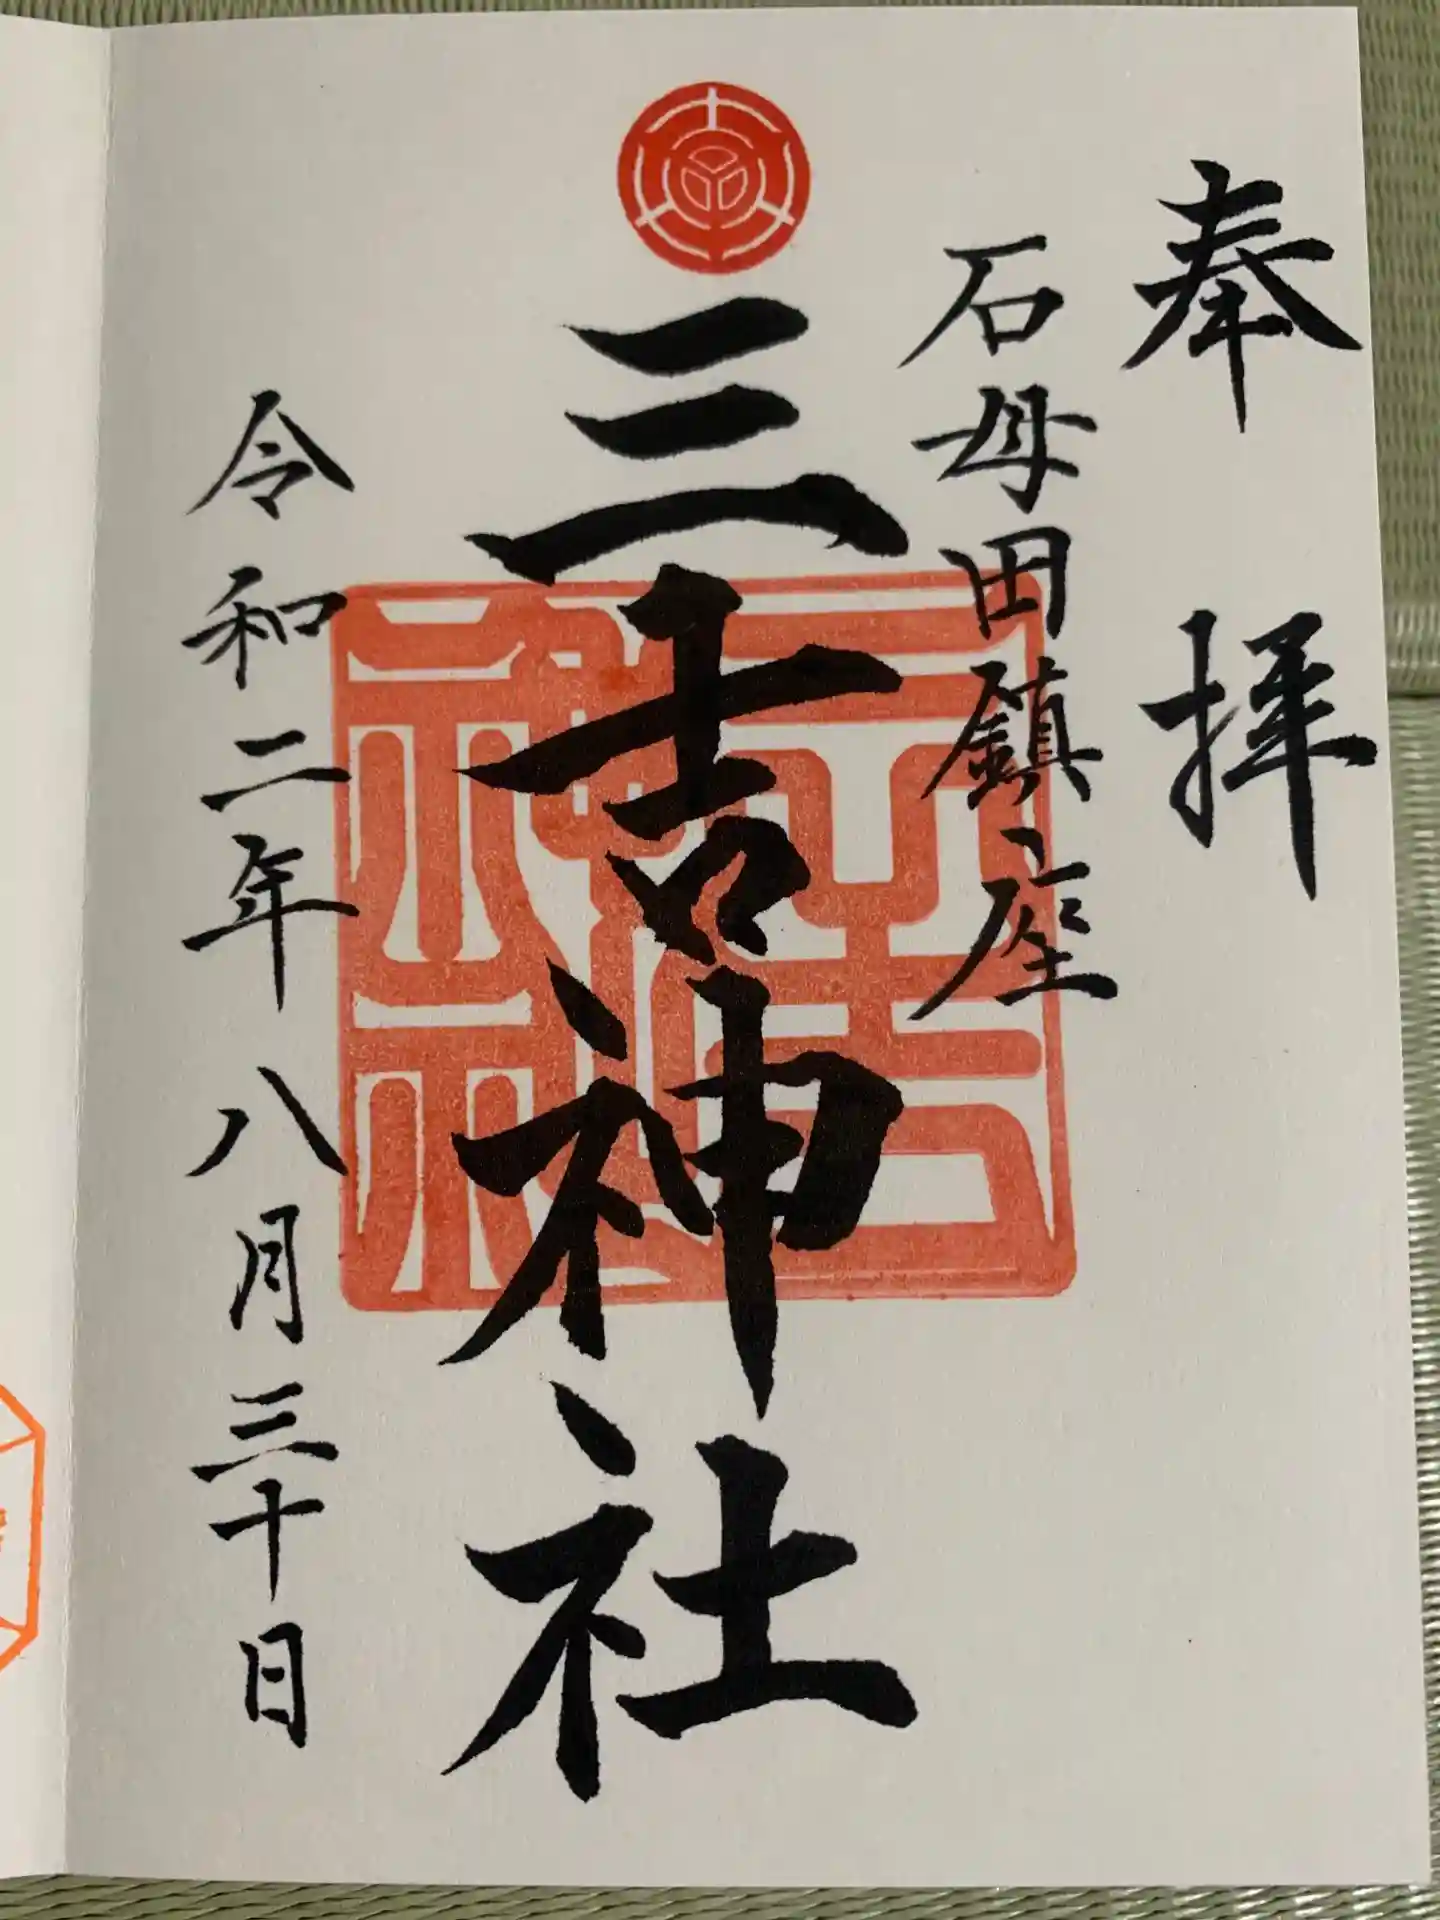 奉拝
石母田鎮座
三吉神社
令和二年八月三十日